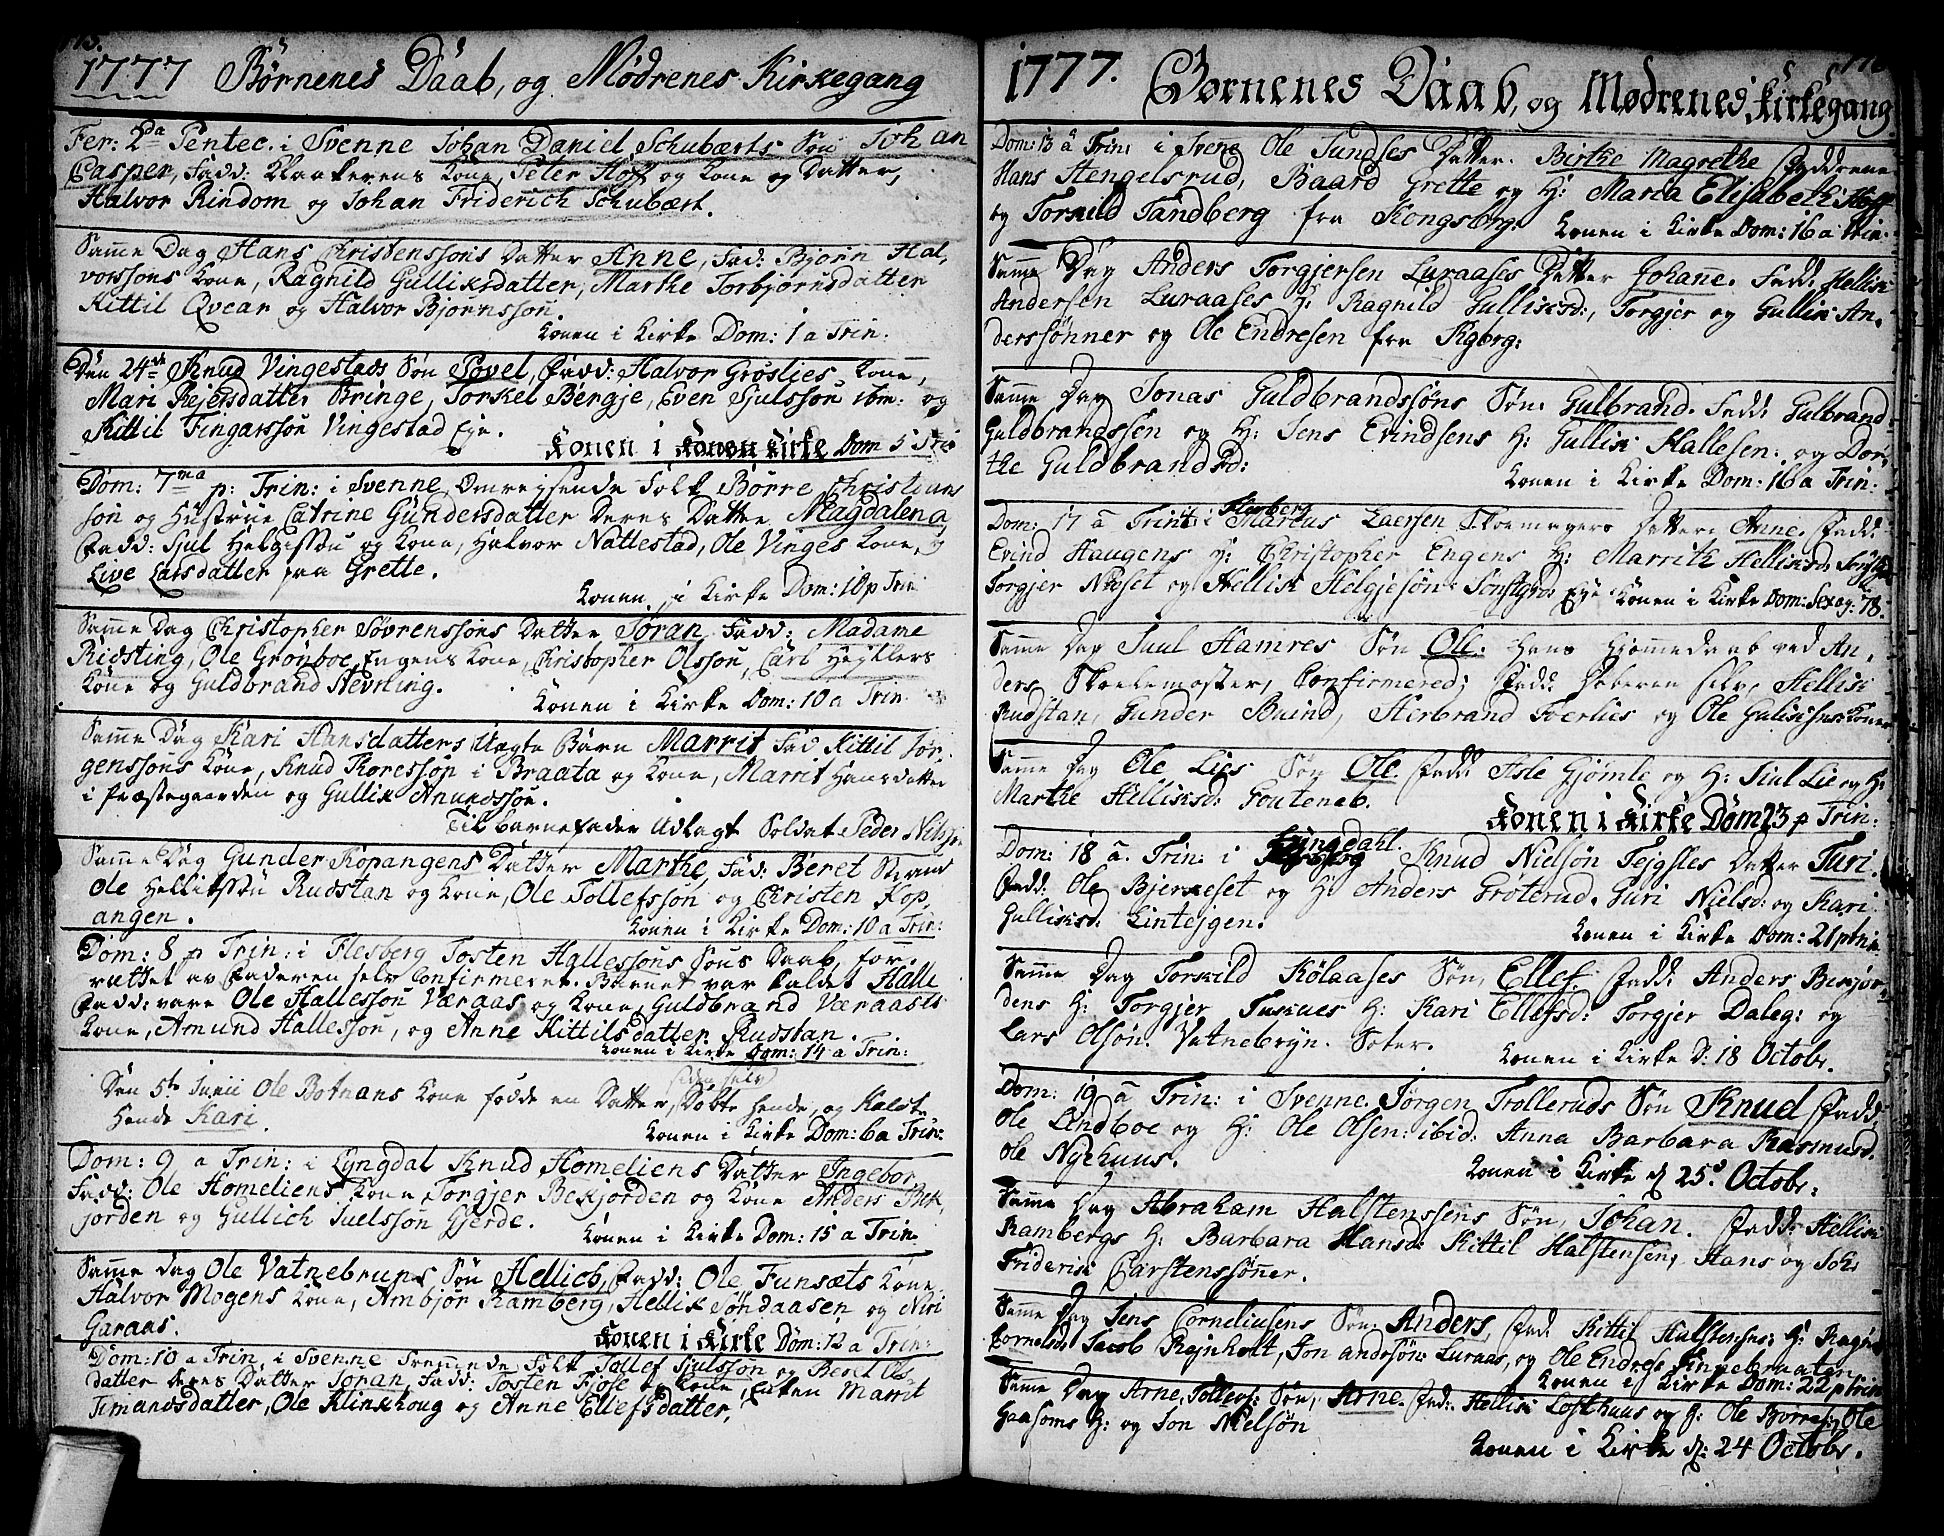 1777 Børnenes Daab, og Mødrenes Kirkegang
Fer: 2da Pentec. i Svenne Johan Daniel Schubærts Søn Johan
Casper, Fadd: Klokkerens Kone, Peter Hoff og Kone og Datter,
Halvor Rindom og Johan Friderich Schubært.
Samme Dag Hans Christenssøns Datter Anne, Fad: Bjørn Hal,
vorssøns Kone, Ragnild Gulliksdatter, Marthe Torbjørnsdatter
Kittil Qvear og Halvor Bjørnssøn.
Konen i Kirke Dom: 1 a Trin:
Den 24de Knud Vingestads Søn Povel, Fadd: Halvor Grøslies Kone,
Mari Rejersdatter Bringe, Torkel Bergje, Even Sjulssøn ibm: og
Kittil Fingarssøn Vingestad Eje.
Konen i Konen Kirke Dom 5 Trin
Dom: 7ma p: Trin: i Svenne Omrejsende Folk Børre Christians
søn og Hustrue Catrine Gundersdatter Deres Datter Magdalena
Fadd: Sjul Helgissøn og Kone, Halvor Nattestad, Ole Vinges Kone,
Live Larsdatter paa Grette.
Konen i Kirke Dom: 10 p Trin
Samme Dag Christopher Søvrenssøns Datter Søran Fadd: Madame
Ridsting, Ole Grønboe, Engens Kone, Christopher Olssøn, Carl Hejllers
Kone og Guldbrand Nevning.
Konen i Kirke Dom: 10 a Trin
Samme Dag Kari Hansdatters Uægte Barn Marrit Fad Kittil Jør,
genssøns Kone, Knud Thoressøn i Braata og Kone, Marrit Hansdatter
i Præstegaarden og Gullik Anundssøn.
Til barnefader Udlagt Soldat Peder Nilss:
Samme Dag Gunder Kopangens Datter Marthe, Fad: Beret Strand
Ole Hellikssøn Rudstan og Kone, Ole Tollefssøn og Christen Kop,
angen.
Konen i Kirke Dom: 10 a Trin:
Dom: 8 p Trin: i Flesberg Tosten Hallessøns Søns Daab, for,
rettet av Faderen selv Confirmeret. Barnet var kaldet Halle
Fadd: vare Ole Hallessøn Væraas og Kone, Guldbrand Væraas's
Kone, Amund Hallessøn, og Anne Kittilsdatter Rudstan.
Konen i Kirke Dom: 14 a Trin:
Den 5te Junii Ole Bothans Kone fødde en Datter, Døbte hende, og Kaldte
Hende Kari.
Konen i Kirke Dom: 6 a Trin:
Dom: 9 a Trin: i Lyngdal Knud Homeliens Datter Ingebor,
Fadd: Ole Homeliens Kone Torgjer Bekjorden og Kone Anders Bek,
jorden og Gullich Juelssøn Gjerde.
Konen i Kirke Dom: 15 a Trin.
Samme dag Ole Vatnebruns Søn Hellich, Fadd: Ole Funsæts Kone,
Halvor Mogens Kone, Ambjør Ramberg, Hellik Søndaasen og Niri
Garaas.
Konen i Kirke Dom: 12 a Trin:
Dom: 10 a Trin, i Svenne Fremmede Folk Tollef Sjulssøn og Beret Ols-
datter deres Datter Søran, Fadd: Tosten Fjøse og Kone, Enken Marrit
Timandsdatter, Ole Klinkhoug og Anne Ellefsdatter,
1777. Børnenes Daab, og Mødrenes Kirkegang
Dom: 13 a Trin: i Svene Ole Sundses Datter. Birthe Magrethe Faddrene
Hans Stengelsrud, Baard Grette og H: Maria Elisabeth Hoff
og Torkild Tandberg fra Kongsberg.
Konen i Kirke Dom: 16 a Trin:
Samme Dag Anders Torgjersen Luraases Datter Johane. Fadd: Hellik
Andersen Luraases H: Ragnild Gulliksd:, Torgjer og Gullik An,
derssønner og Ole Endresen fra Kgbrg:
Samme Dag Jonas Guldbrandssøns Søn Gulbrand. Fadd: Gulbrand
Guldbrandssen og H: Jens Evindsens H: Gullik Hallesen: og Dor,
the Guldbrandsd:
Konen i Kirke Dom: 16 a Trin:
Dom: 17 a Trin: i Flesberg Marcus Laersen Skomagers Datter: Anne. Fadd:
Evind Haugens H: Christopher Engens H: Marrith Helliksd:
Torgjer Næset og Hellik Helgjesøn: Eje Konen i Kirke Dom: Sexag: 78.
Samme Dag Juul Hamres Søn Ole. Hans Hjemmedaab ved An,
ders Skolemester, Confirmered; Fadd: Hellik
Rudstan, Gunder Buind, Herbrand Foerlies og Ole
Samme Dag Ole Lies Søn Ole. Fadd: Asle Gjømle og H: Siul Lie og H:
Marthe Helliksd:
Konen i Kirke Dom 23 p Trin:
Dom: 18 a. Trin: i Lyngdahl. Knud Nielsøn Tejgsles Datter Turi.
Fadd: Ole Bjerkeset og H: Anders Grøterud. Guri Nielsd: og Kari
Gulliksd: Lintejgen.
Konen i Kirke Dom: 21 p Trin
Samme Dag Torkild Kølaases Søn, Ellef. Fadd: Anders Bekjor,
dens H: Torgjer Tuskues H: Kari Ellefsd: Torgjer Daleg: og
Lars Olsøn. Vatnebryn. Soter.
Konen i Kirke D: 18 Octobr.
Dom: 19 a Trin: i Svenne. Jørgen Trolleruds Søn Knud Fadd:
Ole Lindboe og H: Ole Olsen: ibid: Anna Barbara Rasmusd.
Ole Nyehuus.
Konen i Kirke d 25de Octobr:
Samme Dag Abraham Halstenssens Søn, Johan. Fadd: Hellik
Rambergs H: Barbara Hansd: Kittil Halstensen, Hans og Joh:
Friderik Carstenssønner.
Samme Dag Jens Corneliusens Søn: Anders, Fad: Kittil Halstenses: H: Ragn:
Cornelsd: Jacob Rejnholt, Jon andrsøn: Luraas, og Ole Endres:
Konen i Kirke Dom: 22 p Trin
Samme Dag Arne Tollefs: Søn, Arne. Fad: Hellik Lofthuus og H: Ole Borres: Ole
Gaasoms H: og Jon Nielsøn
Konen i Kirke d: 24 Octobr.